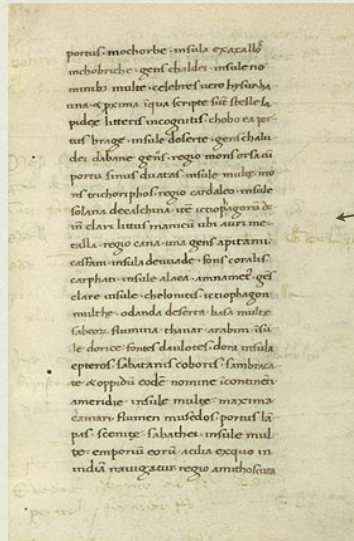 portus mochorbe · insula exaxallo
inchobriche · gens chaldei · insule no
minibꝫ multe · celebres uero hysurha
una · et pxima i qua scripte sut stelle la
pidee litteris incognitis · chobo ea por
tus brage · insule deserte · gens chalu
dei dabane gens · regio mons orsa cu
portu sinus duatas · insule multe · mo
ns trichoriphos · regio cardaleo · insule
solana decalchina · ite ictiophagoru de
in clari litus manicu ubi auri me
talla · regio cana · una gens apitami
casani · insula deuade · fons coralis
carphati · insule alaea · amnamet · ges
clare insule · chelonitis · ictiophagon
multhe · odanda deserta · basa multe
sabeoꝝ · flumina · thanar · arabim · isu
le dorice · fontes daulotes · dora insula
epteros · sabatanis coboris · sambraca
te · et oppidu eode nomine i contineti
ameridie · insule multe · maxima
camari · flumen musedos · portus la
pas · scenite · sabathei · insule mul
te · emporiu eoru acila exquo in
india nauigatur · regio amithoscuta